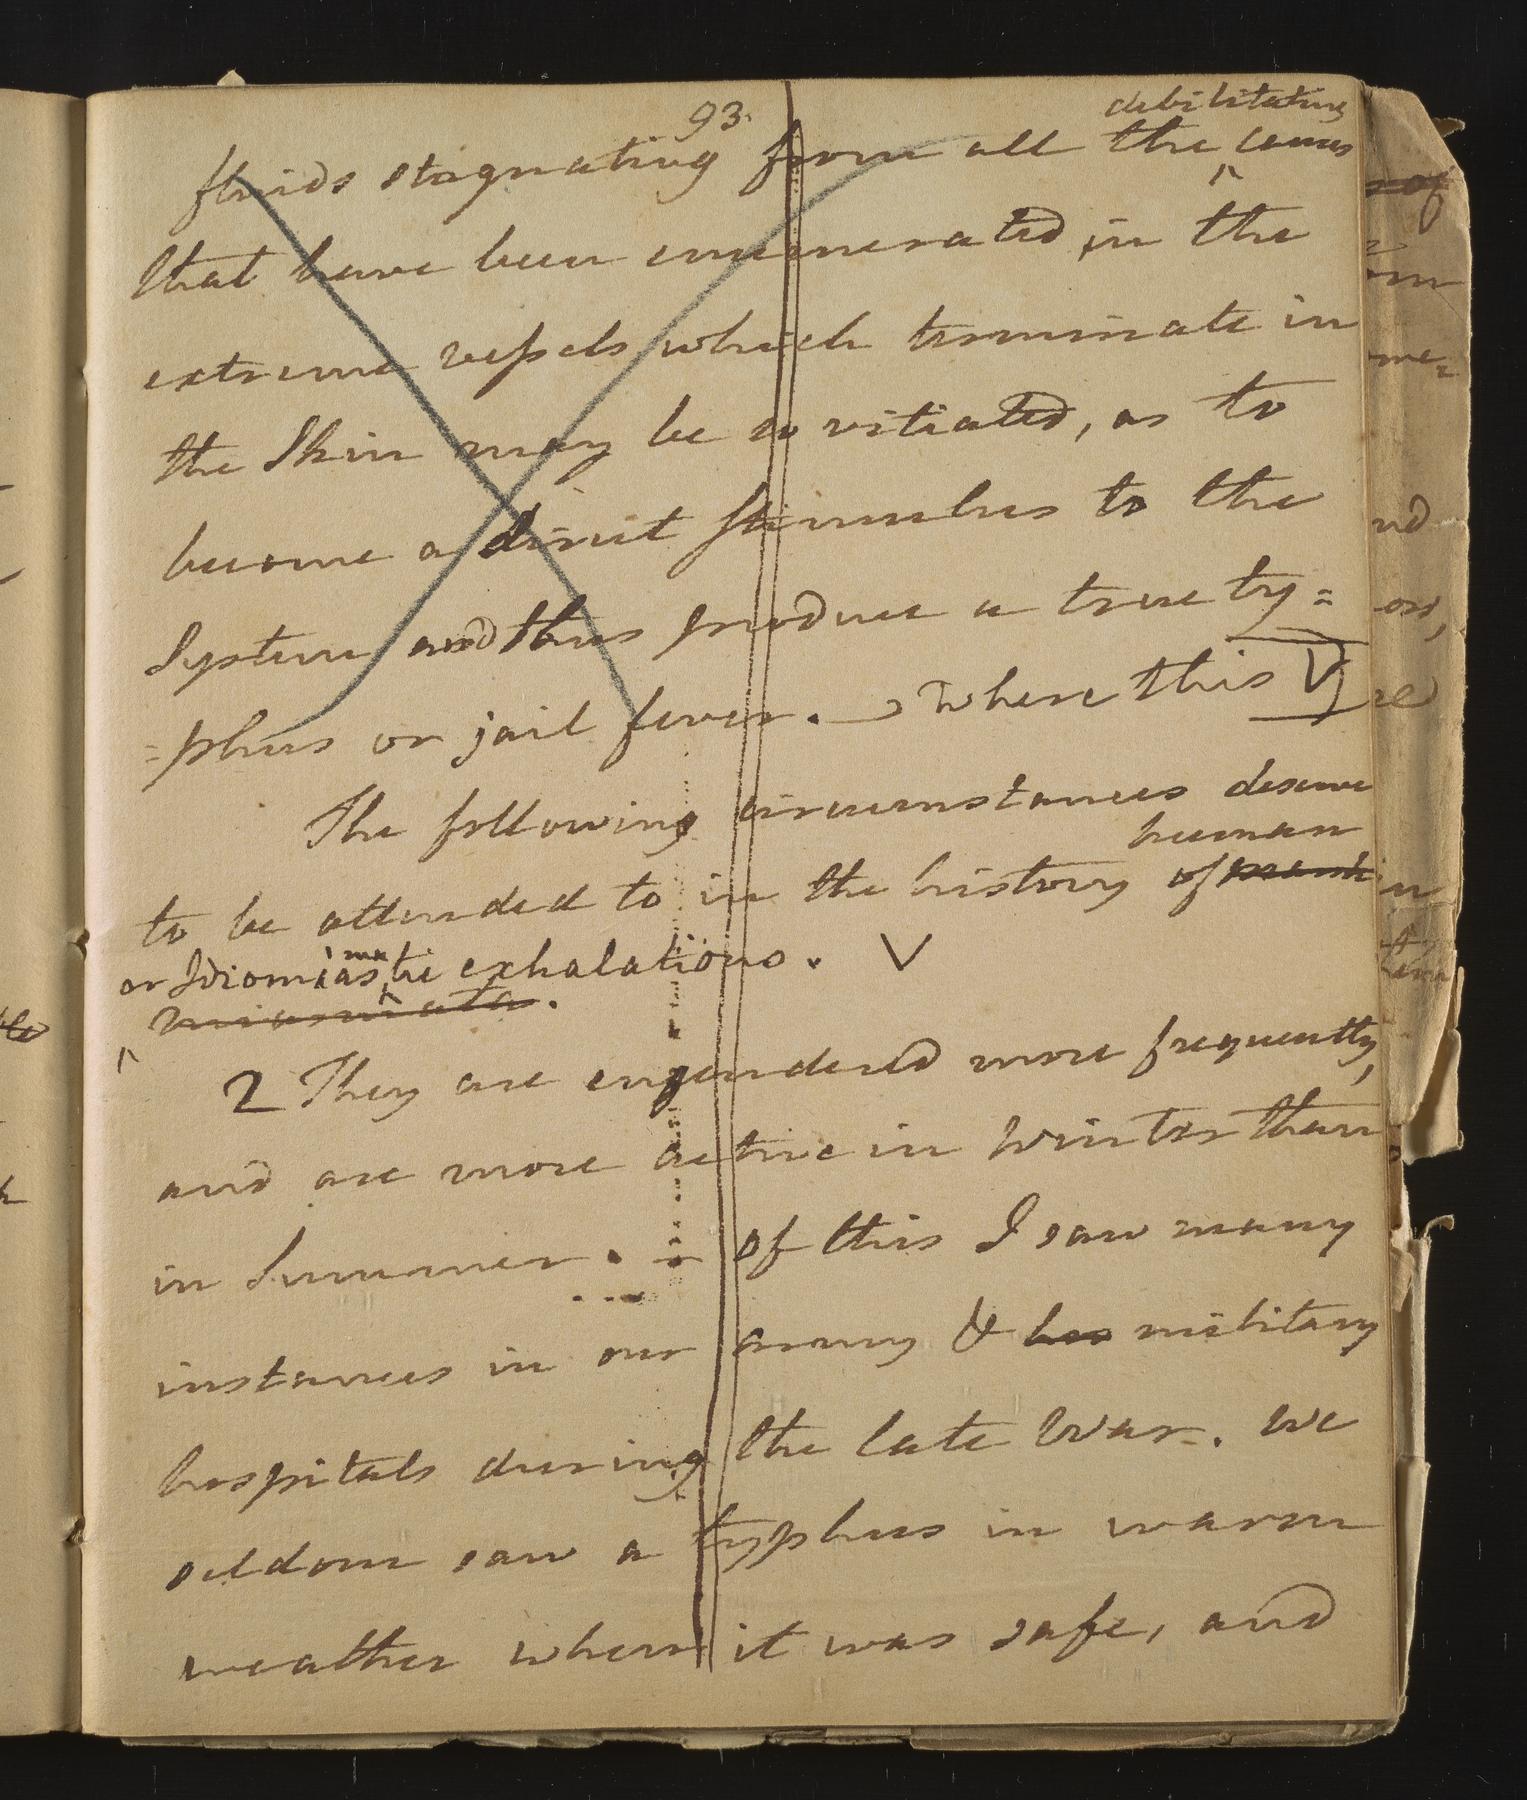 93.
debilitating
fluids stagnating from all the ^ causes
that have been enumerated, in the
extreme vessels which terminate in
the Skin may be so vitiated, as to
become a direct stimulus to the
System and thus produce a true ty=
=phus or jail fever. — Where this V
The following circumstances deserve
human
to be attended to in the history of
or Idiomiasmatic exhalations. V
miasmata.
2 They are engendered more frequently,
and are more active in Winter than
in Summer. — Of this I saw many
instances in our army & hos military
hospitals during the late War. We
seldom saw a typhus in warm
weather when it was safe, and